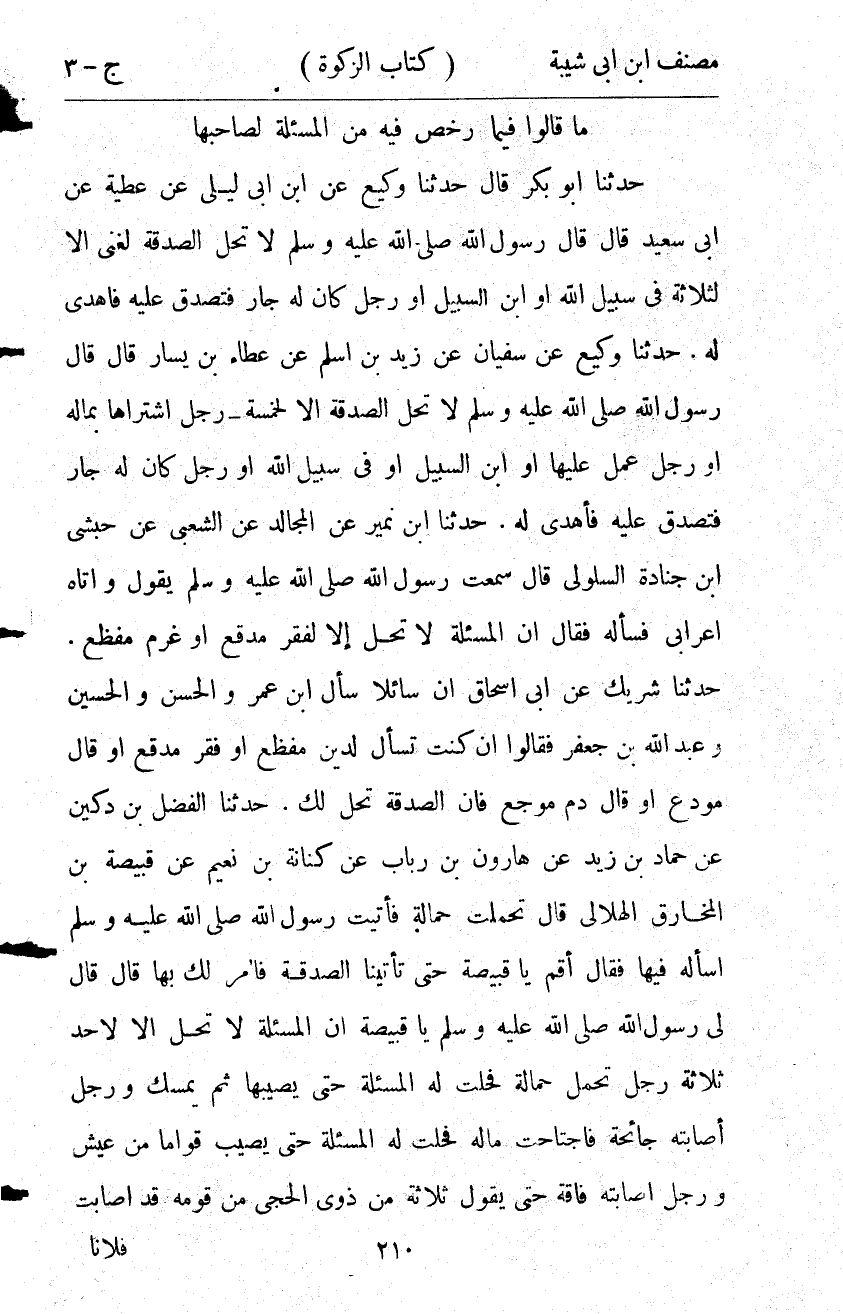 مصنف ابن ابى شيبة ( كتاب الزكوة ) ج - ٣
ما قالوا فيما رخص فيه من المسئلة لصاحبها
حدثنا ابو بكر قال حدثنا وكيع عن ابن ابى ليلى عن عطية عن
ابى سعيد قال قال رسول الله صلى الله عليه و سلم لا تحل الصدقة لغنى الا
لثلاثة فى سبيل الله او ابن السبيل او رجل كان له جار فتصدق عليه فاهدى
له . حدثنا وكيع عن سفيان عن زيد بن اسلم عن عطاء بن يسار قال قال
رسول الله صلى الله عليه و سلم لا تحل الصدقة الا لخمسة ـ رجل اشتراها بماله
او رجل عمل عليها او ابن السبيل او فى سبيل الله او رجل كان له جار
فتصدق عليه فأهدى له . حدثنا ابن نمير عن المجالد عن الشعبى عن حبشى
ابن جنادة السلولى قال سمعت رسول الله صلى الله عليه و سلم يقول و اتاه
اعرابى فسأله فقال ان المسئلة لا تحل إلا لفقر مدقع او غرم مفظع .
حدثنا شريك عن ابى اسحاق ان سائلا سأل ابن عمر و الحسن و الحسين
و عبد الله بن جعفر فقالوا ان كنت تسأل لدين مفظع او فقر مدقع او قال
مودع او قال دم موجع فان الصدقة تحل لك . حدثنا الفضل بن دكين
عن حماد بن زيد عن هارون بن رباب عن كنانة بن نعيم عن قبيصة بن
المخارق الهلالى قال تحملت حمالة فأتيت رسول الله صلى الله عليه و سلم
اسأله فيها فقال أقم يا قبيصة حتى تأتينا الصدقة فأمر لك بها قال قال
لى رسول الله صلى الله عليه و سلم يا قبيصة ان المسئلة لا تحل الا لاحد
ثلاثة رجل تحمل حمالة فحلت له المسئلة حتى يصيبها ثم يمسك و رجل
أصابته جائحة فاجتاحت ماله فحلت له المسئلة حتى يصيب قواما من عيش
و رجل اصابته فاقة حتى يقول ثلاثة من ذوى الحجى من قومه قد اصابت
فلانا
٢١٠